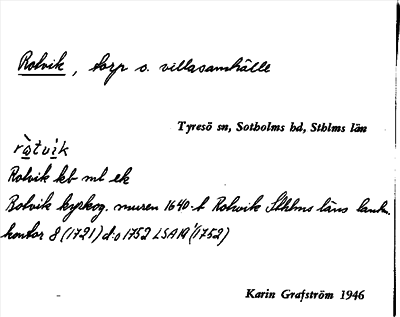 Rotvik, torp o. villasamhälle
Tyresö sn, Sotholms hd, Sthlms län
ròtvik
Rotvik kb ml ek
Botvik kyrkog. muren 1640-t Rotwik Sthlms läns lantm.
kontor 8 (1721) d:o 1752 LSA 14 (1752)
Karin Grafström 1946